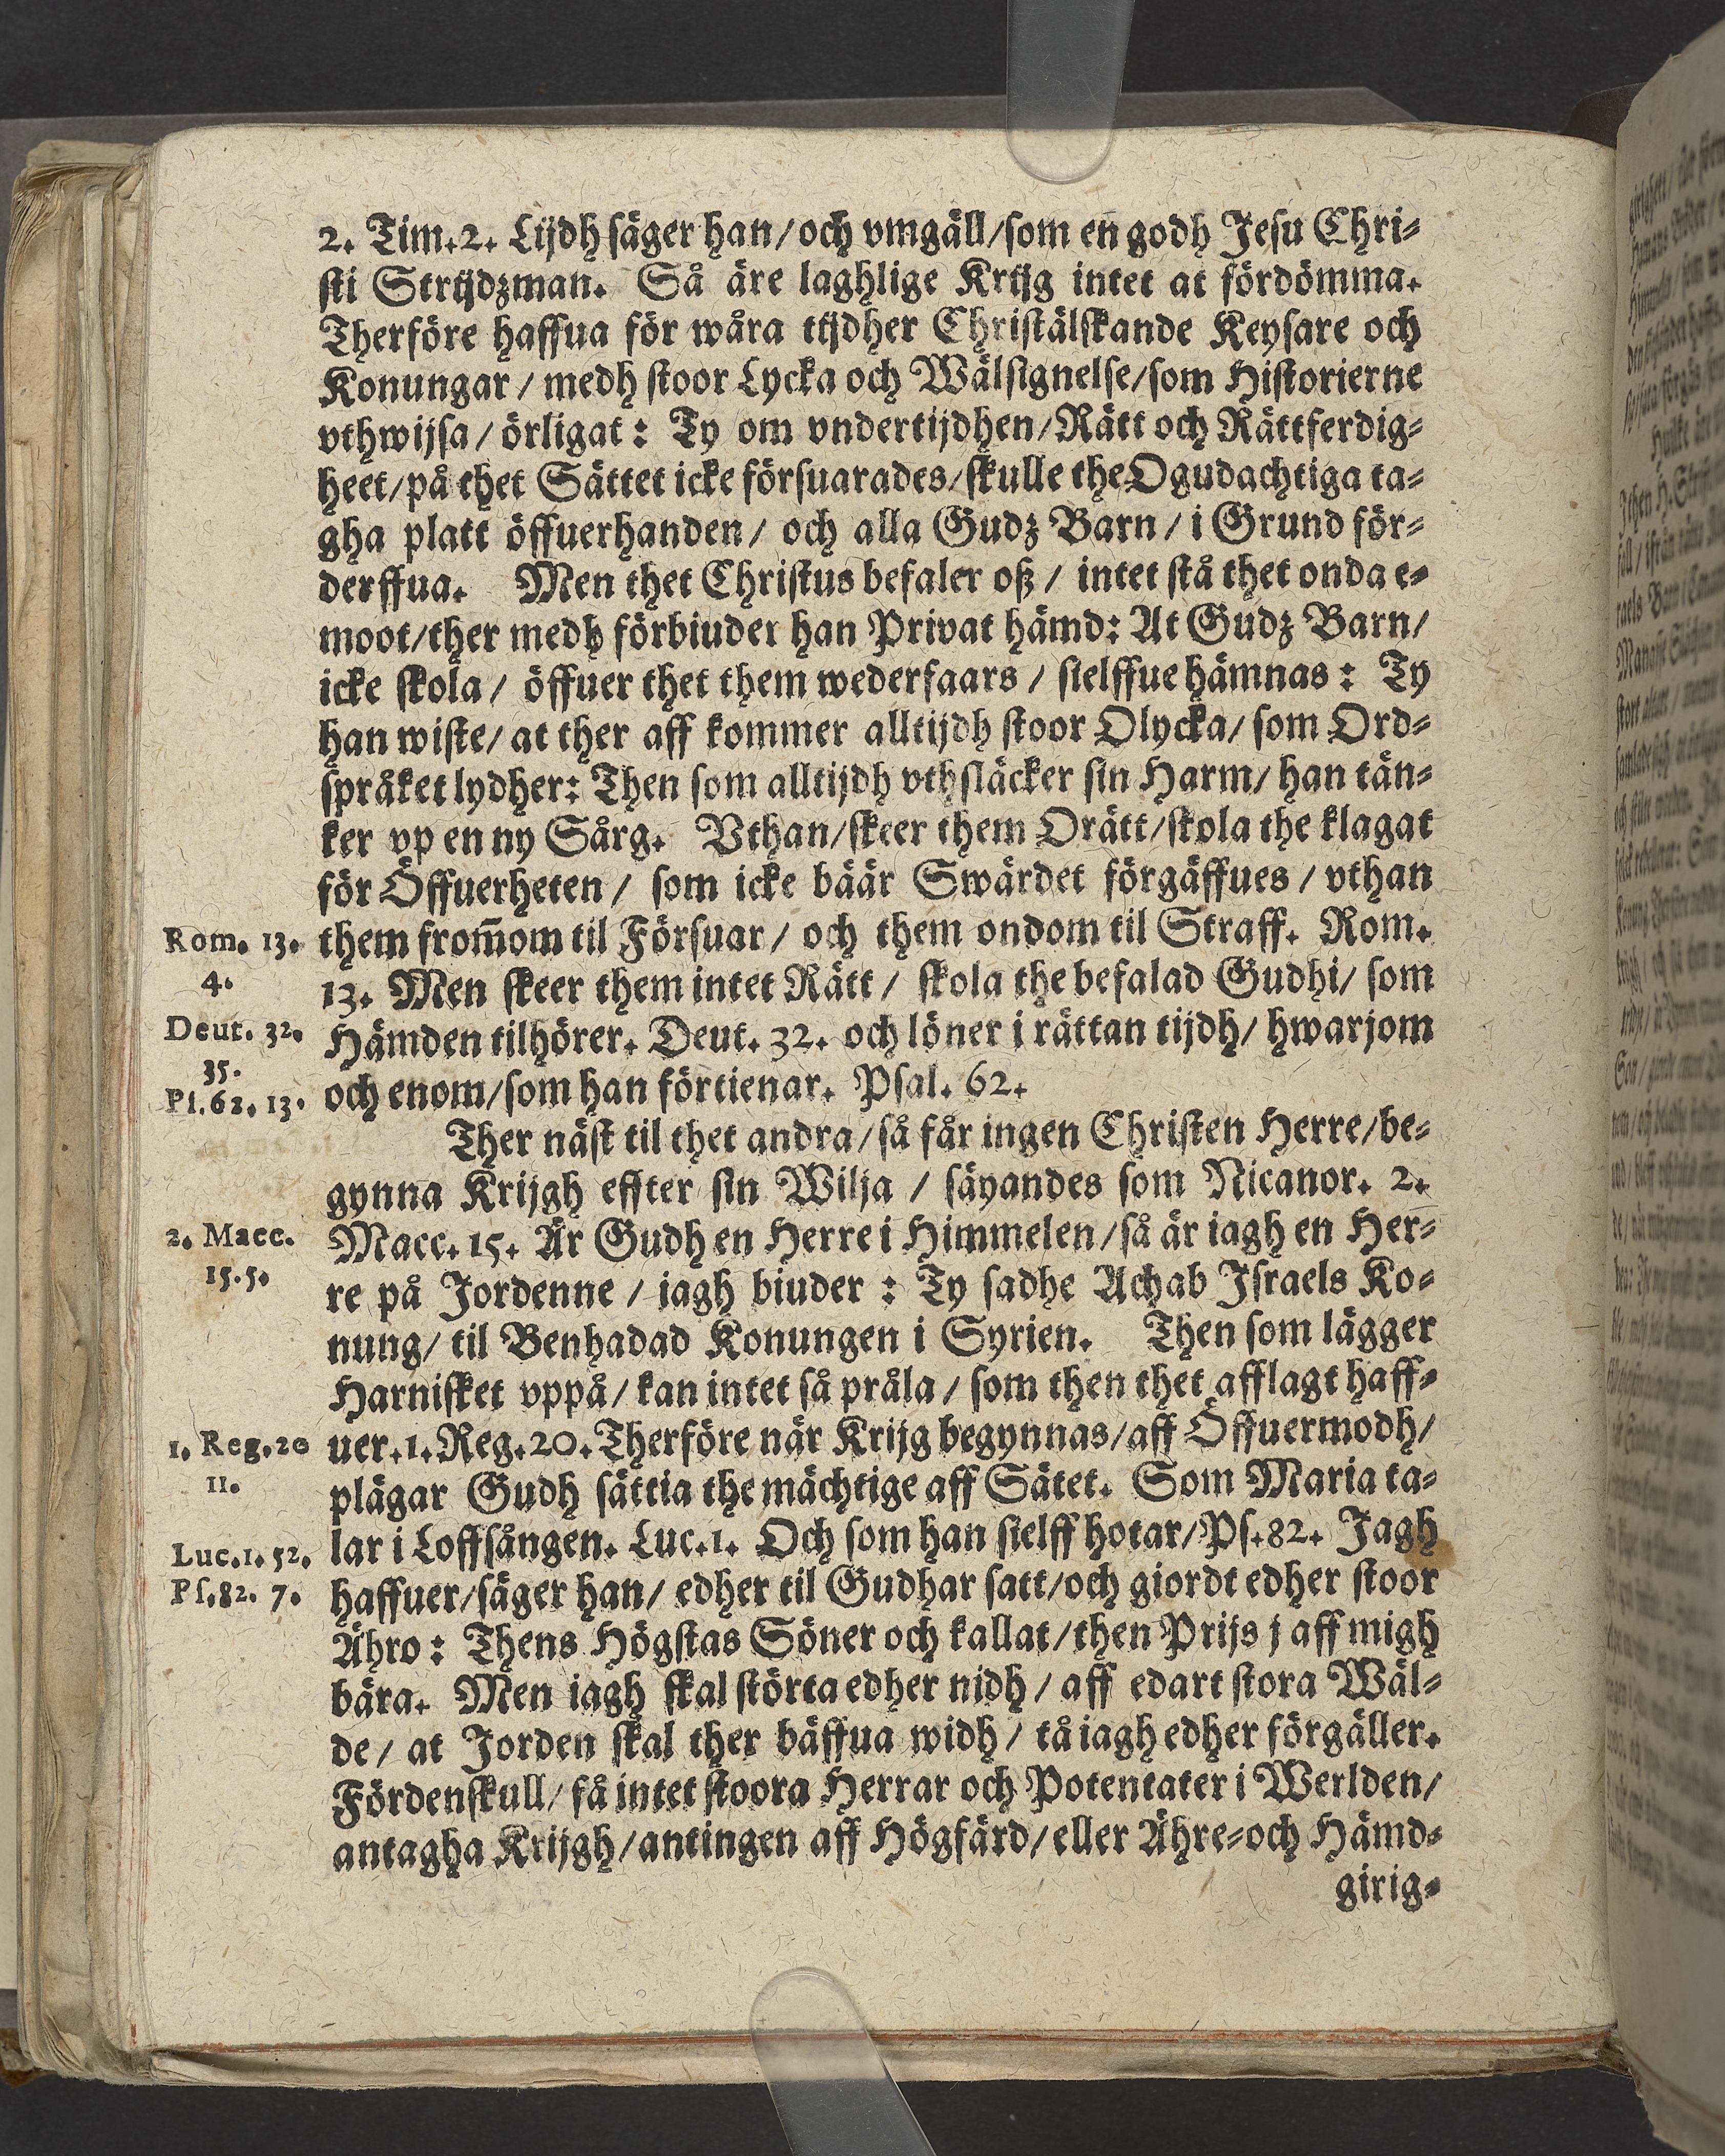 2. Tim. 2. Lijdh säger han/och vmgäll/som en godh Jesu Chri-
sti Strijdzman. Så äre laghlige Krijg intet at fördömma.
Therföre haffua för wåra tijdher Christälskande Keysare och
Konungar/medh stoor Lycka och Wälsignelse/som Historierne
vthwijsa/örligat: Ty om vndertijdhen/Rätt och Rättferdig-
heet/på thet Sättet icke försuarades/skulle the Ogudachtiga ta-
gha platt öffuerhanden/och alla Gudz Barn/i Grund för-
derffua. Men thet Christus befaler oß/intet stå thet onda e-
moot/ther medh förbiuder han Privat hämd: At Gudz Barn/
icke skola/öffuer thet them wederfaars/sielffue hämnas: Ty
han wiste/at ther aff kommer alltijdh stoor Olycka/som Ord-
språket lydher: Then som alltijdh vthsläcker sin Harm/han tän-
ker vp en ny Sårg. Vthan/skeer them Orätt/skola the klagat
för Öffuerheten/som icke bäär Swärdet förgäffues/vthan
Rom. 13. them from̃om til Försuar/och them ondom til Straff. Rom.
4. 13. Men skeer them intet Rätt/skola the befalad Gudhi/som
Deut. 32. Hämden tilhörer. Deut. 32. och löner i rättan tijdh/hwarjom
35.
Ps.62. 13. och enom/som han förtienar. Psal. 62.
Ther näst til thet andra/så får ingen Christen Herre/be-
gynna Krijgh effter sin Wilja/säyandes som Nicanor. 2.
2. Macc. Macc. 15. Är Gudh en Herre i Himmelen/så är iagh en Her-
15.5. re på Jordenne/iagh biuder: Ty sadhe Achab Israels Ko-
nung/til Benhadad Konungen i Syrien. Then som lägger
Harnisket vppå/kan intet så pråla/som then thet afflagt haff-
1. Reg.20 uer. 1. Reg. 20. Therföre när Krijg begynnas/aff Öffuermodh/
11. plägar Gudh sättia the mächtige aff Sätet. Som Maria ta-
Luc.1. 52. lar i Loffsången. Luc. 1. Och som han sielff hotar/Ps. 82. Jagh
Ps.82. 7. haffuer/säger han/edher til Gudhar satt/och giordt edher stoor
Ähro: Thens Högstas Söner och kallat/then Prijs j aff migh
bära. Men iagh skal störta edher nidh/aff edart stora Wäl-
de/at Jorden skal ther bäffua widh/tå iagh edher förgäller.
Fördenskull/få intet stoora Herrar och Potentater i Werlden/
antagha Krijgh/antingen aff Högfärd/eller Ähre-och Hämd-
girig-